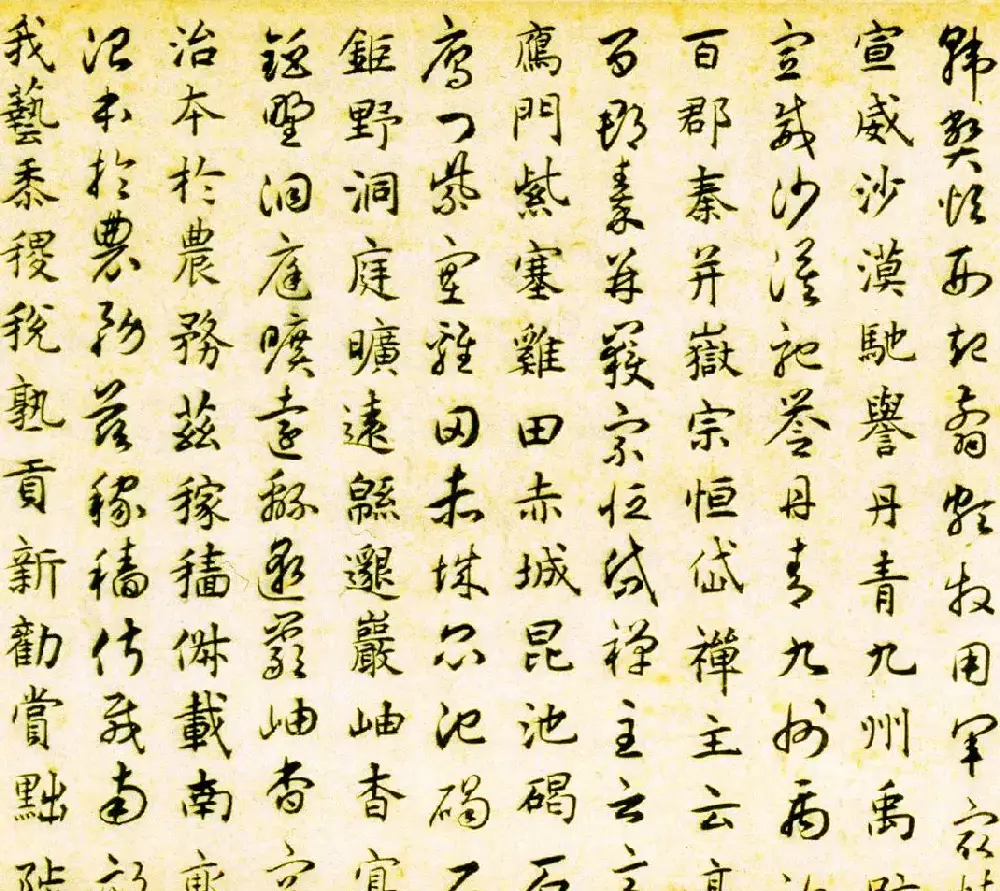 韓弊煩刑起翦頗牧用軍最
宣威沙漠馳譽丹青九州禹
宣威沙漠馳譽丹青九州禹
百郡秦并嶽宗恒岱禪主云
百郡秦并嶽宗恒岱禪主云
鴈門紫塞雞田赤城昆池碣石
鴈門紫塞雞田赤城昆池碣石
鉅野洞庭曠遠緜邈巖岫杳
鉅野洞庭曠遠緜邈巖岫杳
治本於農務茲稼穡俶載南
治本於農務茲稼穡俶載南
我藝黍稷稅熟貢新勸賞黜陟